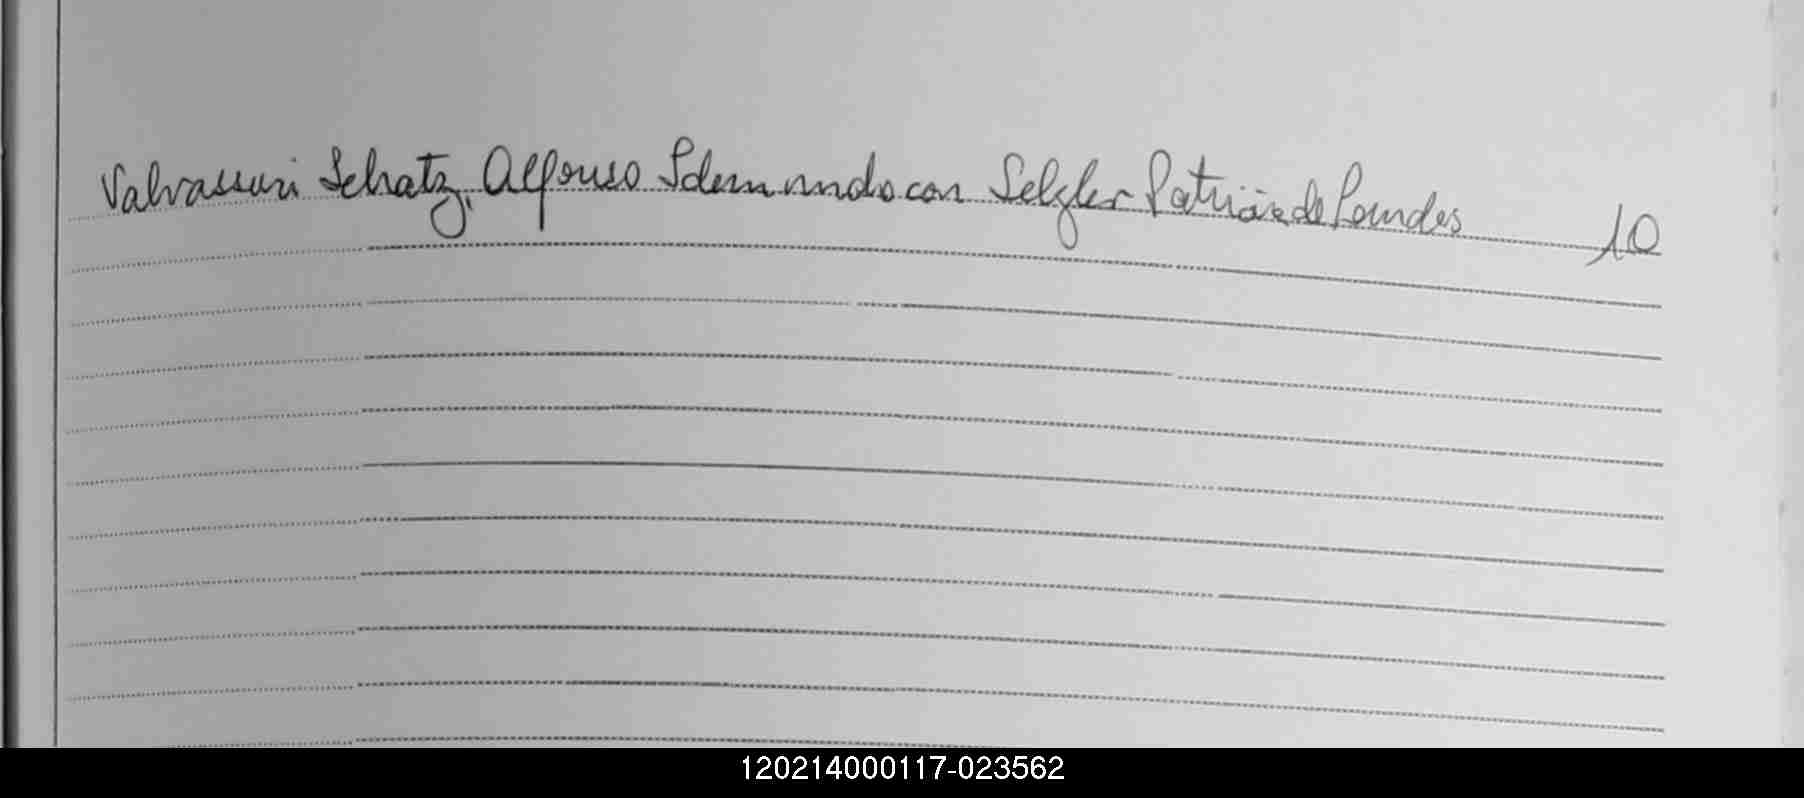 Valvassuri Schatz, Alfonso Idemundo con Selzler Patricia de Lourdes 10
120214000117-023562